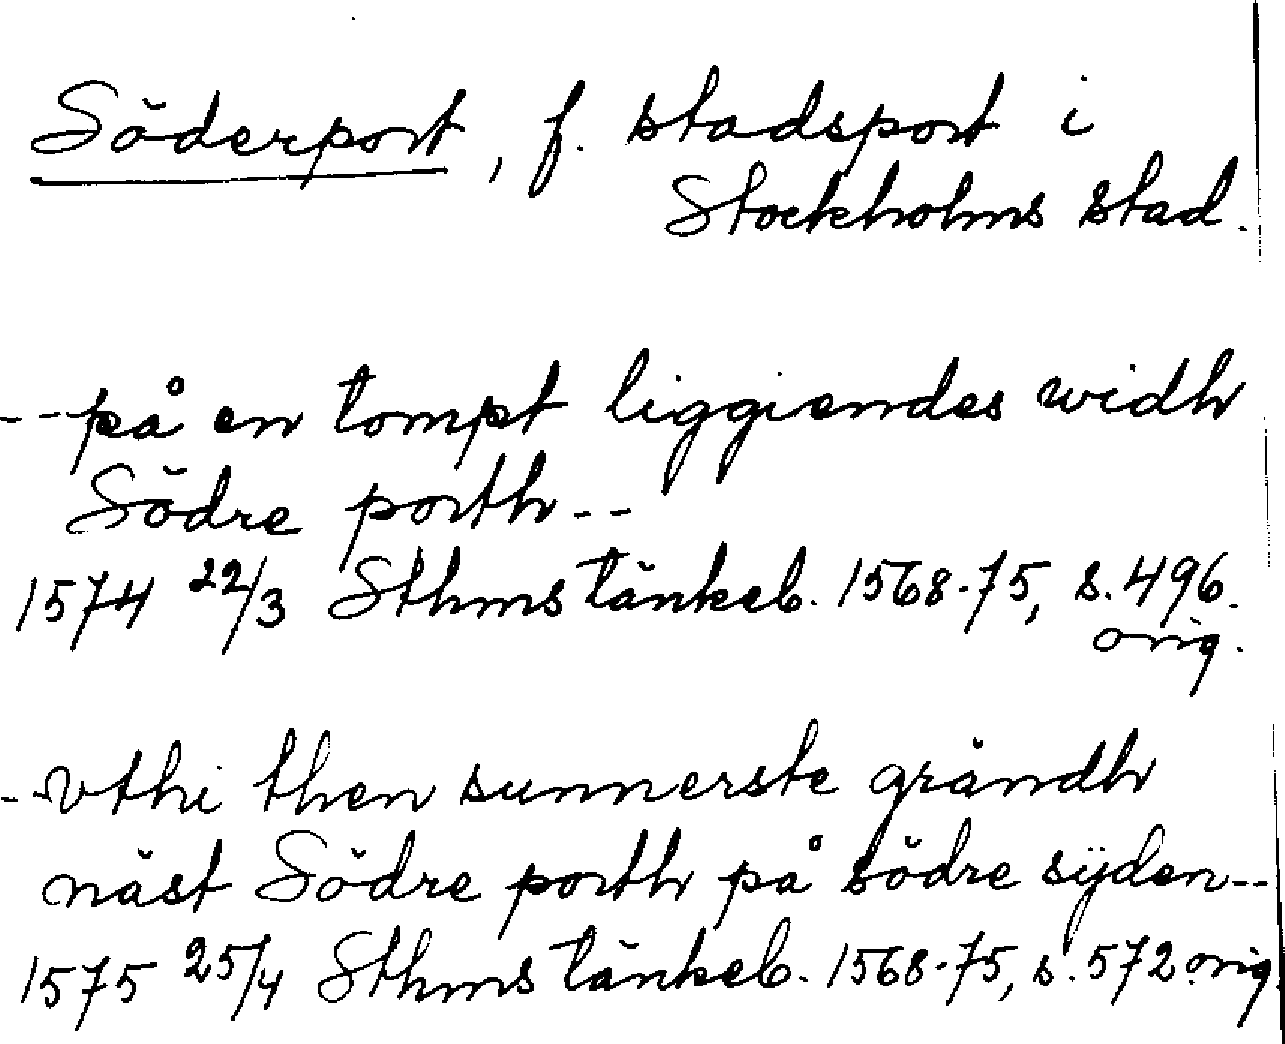 Söderport, f. stadsport i
Stockholms stad.
--på en tompt liggiendes widh
Södre porth--
1574 22/3 Sthms tänkeb. 1568-75, s. 496.
orig.
--vthi then sunnerste grändh
näst Södre porth på södre sÿden--
1575 25/4 Sthms tänkeb. 1568-75, s. 572 orig.